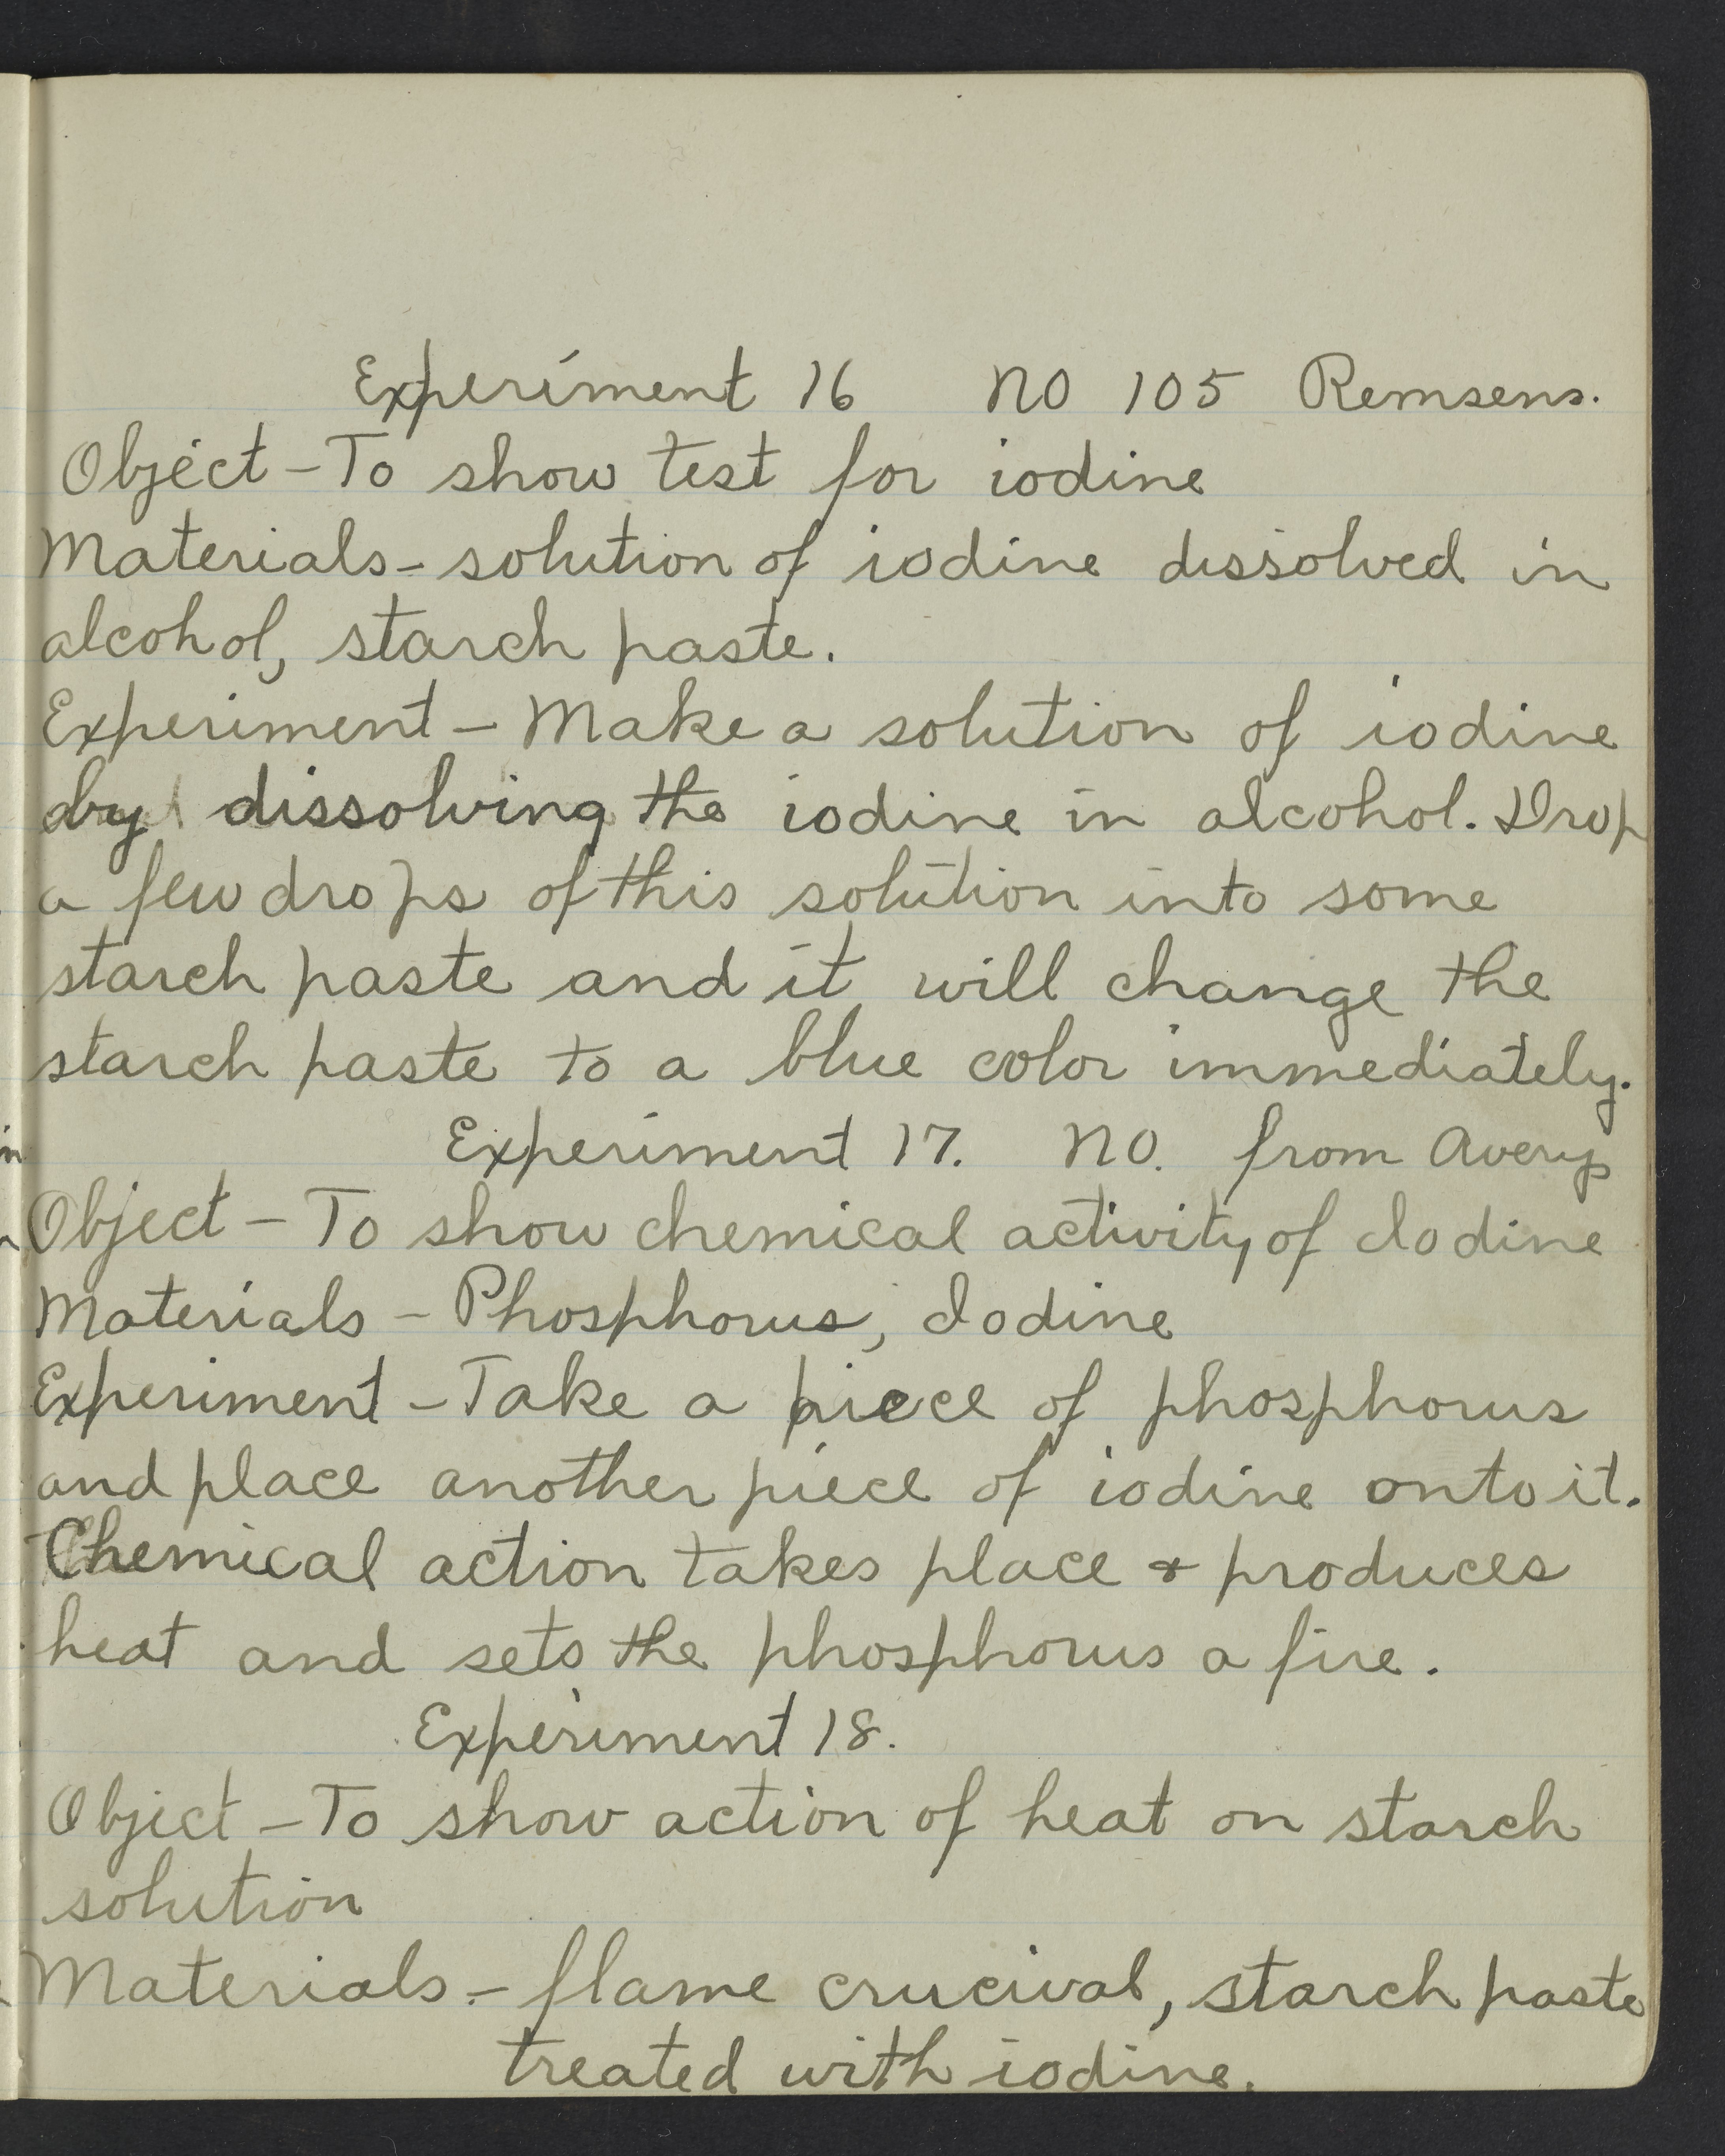 Experiment 16 No 105 Remsens.
Object - To show test for iodine
Materials - solution of iodine dissolved in
alcohol, starch paste.
Experiment - Make a solution of iodine
by dissolving the iodine in alcohol. Drop
a few drops of this solution into some
starch paste and it will change the
starch paste to a blue color immediately.
Experiment 17. No. from Averys
Object - To show chemical activity of Iodine
Materials - Phosphorus, Iodine
Experiment - Take a piece of phosphorus
and place another piece of iodine onto it.
Chemical action takes place & produces
heat and sets the phosphorus a fire.
Experiment 18.
Object - To show action of heat on starch
solution
Materials - flame crucival, starch paste
treated with iodine.